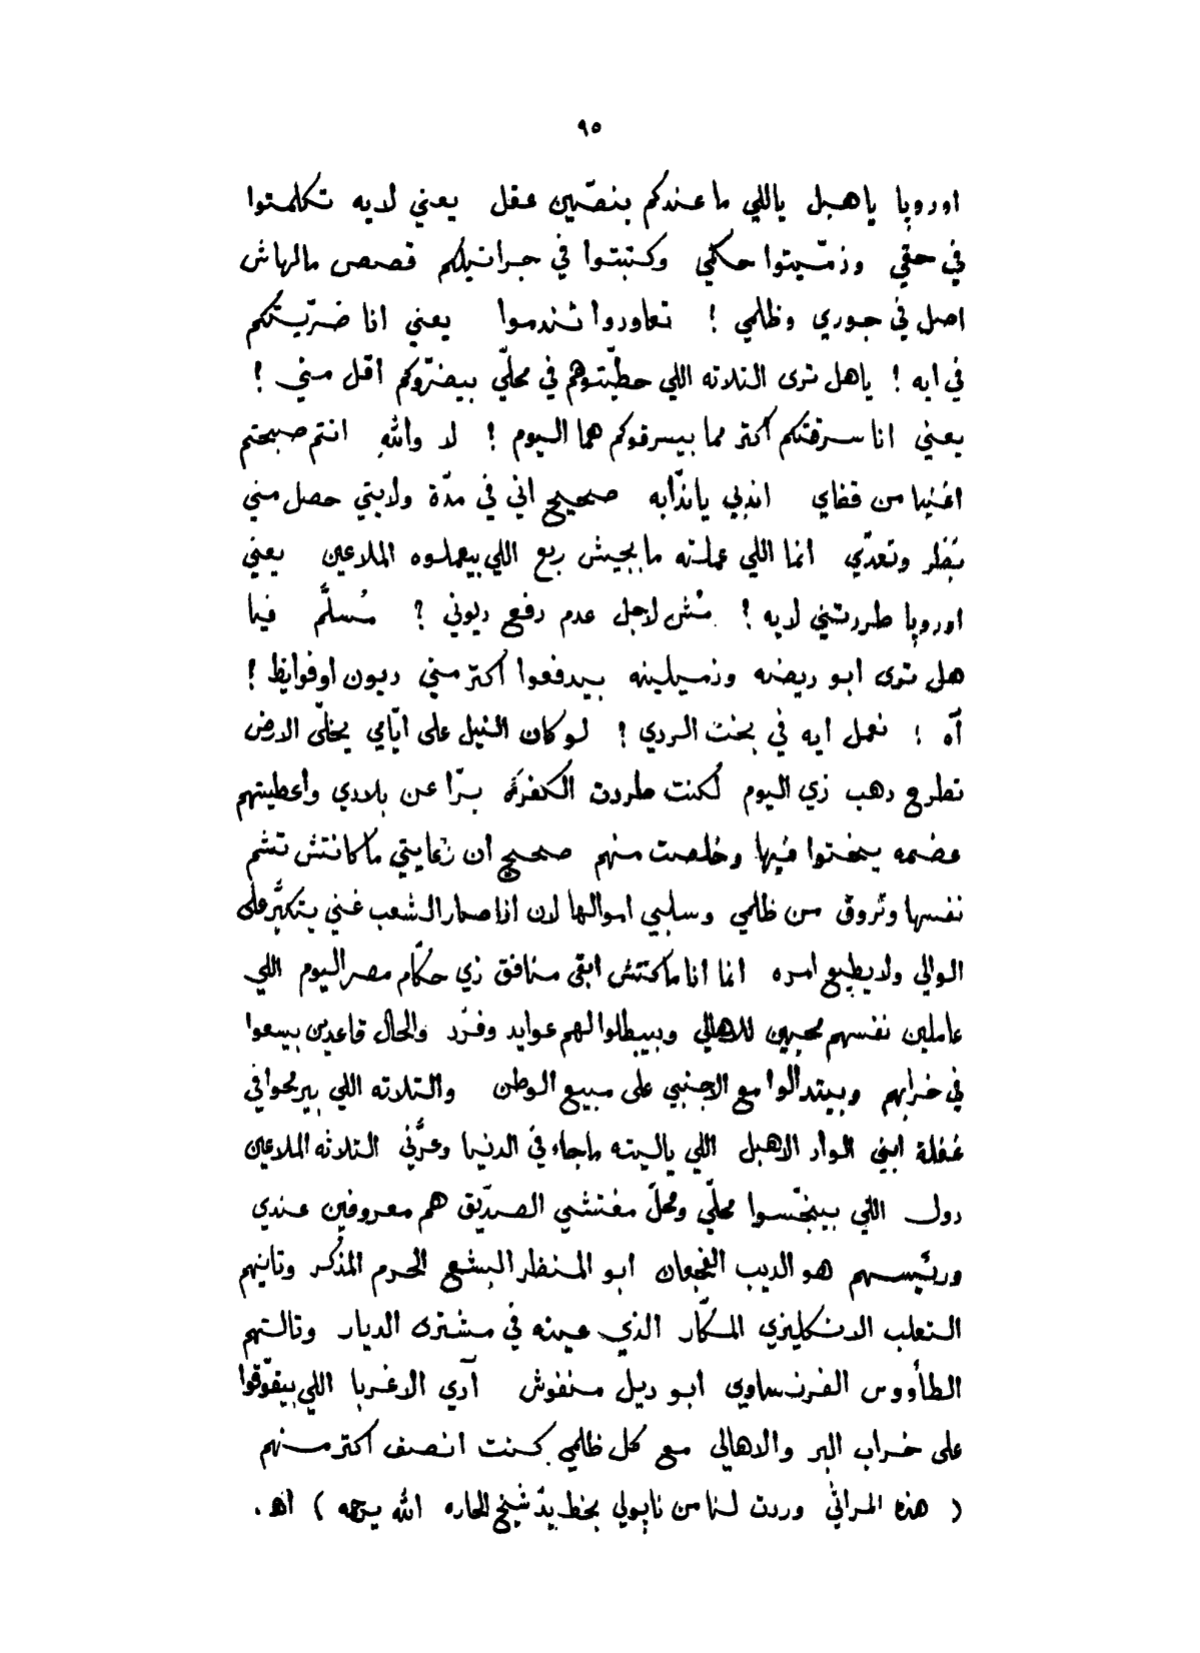 ٩٥
اوروپا ياهبل ياللي ماعندكم بنصّين عقل يعني لايه تكلمتوا
في حقّي وذمّيتوا حكمي وكتبتوا في جرانيلكم قصص مالهاش
اصل في جوري وظلمي ! تعاودوا تندموا يعني انا ضرّيتكم
في ايه ! ياهل ترى التلاته اللي حطّيتوهم في محلّي بيضرّوكم اقل مني !
يعني انا سرقتكم أكتر مما بيسرقوكم هما اليوم ! لا والله انتم صبحتم
اغنيا من قفاي اندبي ياندّابه صحيح اني في مدّة ولايتي حصل مني
وتعدّي انما اللي عملته مايجيش ربع اللي بيعملوه الملاعين يعني
اوروپا طردتني لايه ! مُش لاجل عدم دفع ديوني ? مُسلَّم فيا
هل ترى ابو ريضه وزميلينه بيدفعوا أكتر مني ديون اوفوايظ !
آه ! نعمل ايه في بخت الردي ! لوكان النيل على ايّامي يخلّي الارض
تطرح دهب زي اليوم لكنت طردت الكفرَة برّا عن بلادي واعطيتهم
عضمه يـ فيها وخلصت منهم صحيح ان رعايتي ماكانتش تشم
نفسها وتروق من ظلمي وسلبي اموالها لان اذاصار الشعب غني يتكبَّرعلى
الوالي ولايطيع امره انما انا ماكنتش ابقى منافق زي حكّام مصراليوم اللي
عاملين نفسهم محبين للاهالي وبيبطلوا لهم عوايد وفِرَد والحال قاعدين بيسعوا
في خرابهم وبيتدالّوا مع الاجنبي على مبيع الوطن والتلاته اللي بيرمحوا في
غفلة ابني الواد الاهبل اللي ياليته ماجاء في الدنيا وعرَّني التلاته الملاعين
دول اللي بينجّسوا محلّي ومحلّ مفتشي الصدّيق هم معروفين عندي
ورئيسهم هو الديب الفجعان ابو المنظار البشع المجرم المذكر وتانيهم
التعلب الانكليزي المكّار الذي عينه في مشترى الديار وتالتهم
الطأووس الفرنساوى ابو ديل منفوش آدي الاغربا اللي بيقّوقوا
على خراب البر والاهالي مع كل ظلمي كنت انصف أكتر منهم
( هذه المراثي وردت لنا من ناپولي بخط يدّ شيخ الحاره الله يرحمه ) اه .